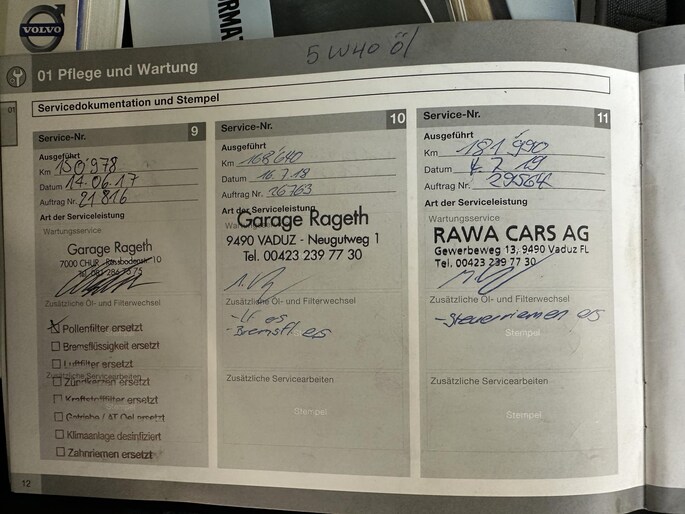 VOLVO
5W40 Öl
01 Pflege und Wartung
01
Servicedokumentation und Stempel
Service-Nr. 9
Ausgeführt
Km 150'978
Datum 14.06.17
Auftrag Nr. 21816
Art der Serviceleistung
Wartungsservice
Garage Rageth
7000 CHUR
Tel. 081 286 75 75
Zusätzliche Öl- und Filterwechsel
Pollenfilter ersetzt
Bremsflüssigkeit ersetzt
Luftfilter ersetzt
Zusätzliche Servicearbeiten
Zündkerzen ersetzt
Kraftstofffilter ersetzt
Stempel
Getriebe / AT Oel ersetzt
Klimaanlage desinfiziert
Zahnriemen ersetzt
Service-Nr. 10
Ausgeführt
Km 168'640
Datum 16.7.18
Auftrag Nr. 26763
Art der Serviceleistung
Garage Rageth
9490 VADUZ - Neugutweg 1
Tel. 00423 239 77 30
Zusätzliche Öl- und Filterwechsel
- Bremsfl. ers
Zusätzliche Servicearbeiten
Stempel
Service-Nr. 11
Ausgeführt
Km 181'990
Datum 4.7.19
Auftrag Nr. 29564
Art der Serviceleistung
Wartungsservice
RAWA CARS AG
Gewerbeweg 13, 9490 Vaduz FL
Tel. 00423 239 77 30
Zusätzliche Öl- und Filterwechsel
- Steuerriemen ers
Stempel
Zusätzliche Servicearbeiten
Stempel
12